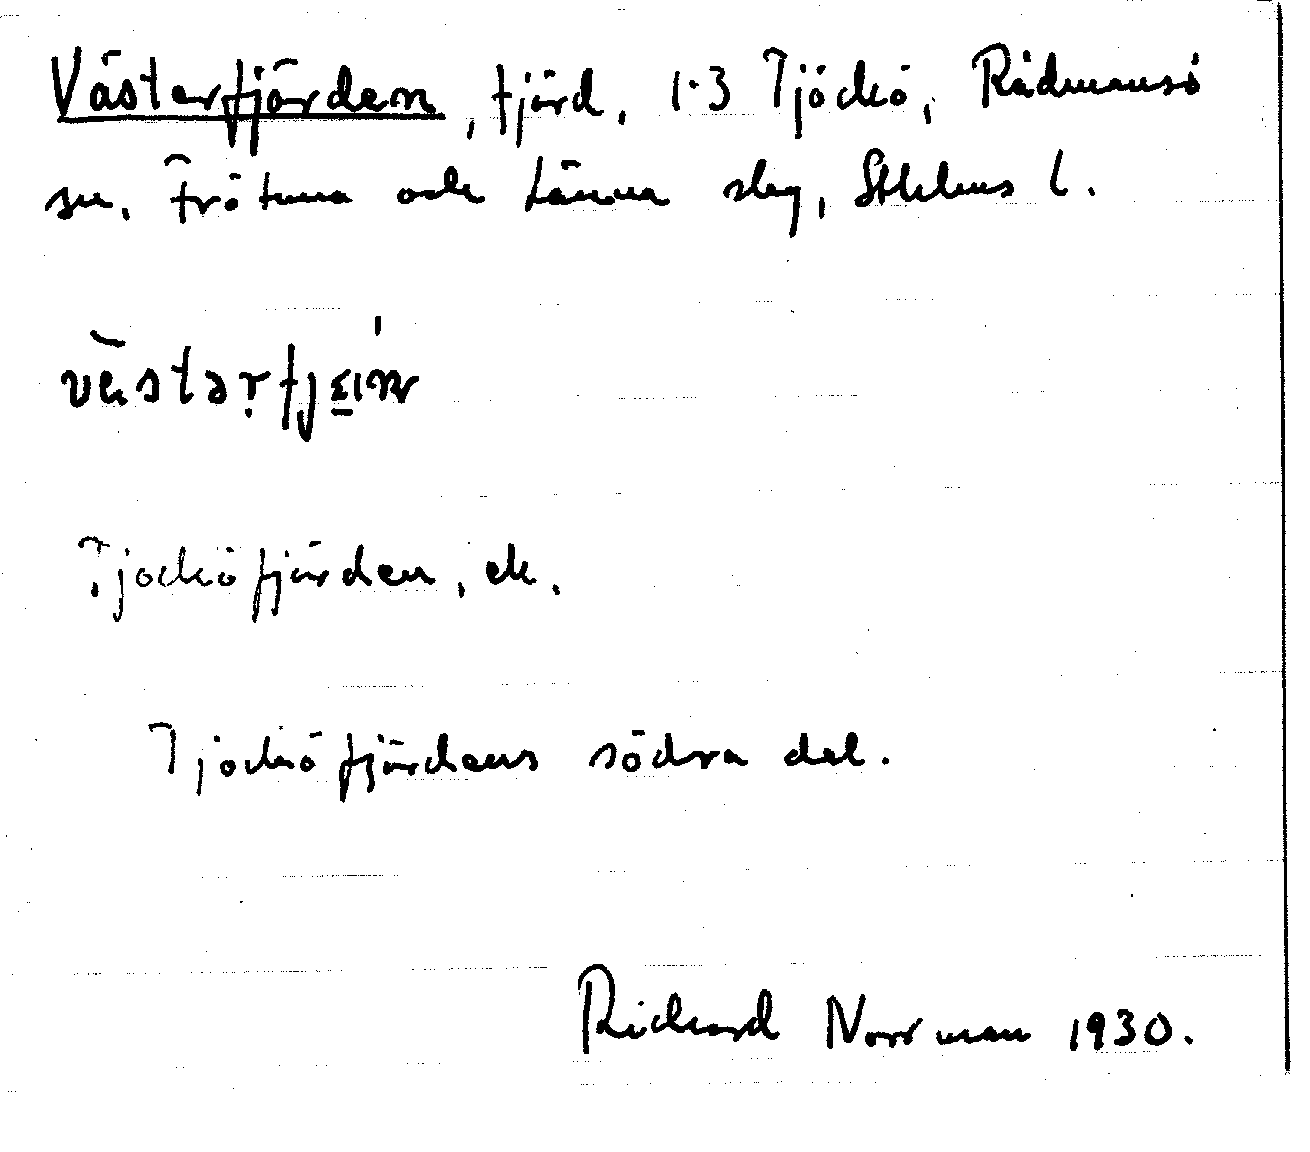 Västerfjärden, fjärd, 1·3 Tjöckö, Rådmansö
sn. Frötuna och Länna slag, Sthlms l.
Tjocköfjärden, ek.
Tjocköfjärdens södra del.
Richard Norrman 1930.